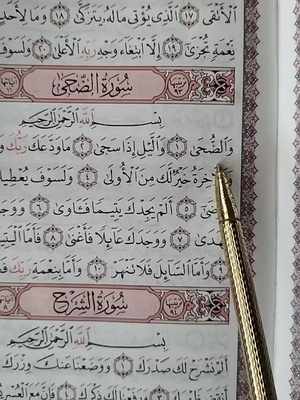 ٱلْأَتْقَى ١٧ ٱلَّذِى يُؤْتِى مَالَهُۥ يَتَزَكَّىٰ ١٨ وَمَا لِأَحَدٍ
نِّعْمَةٍ تُجْزَىٰٓ ١٩ إِلَّا ٱبْتِغَآءَ وَجْهِ رَبِّهِ ٱلْأَعْلَىٰ ٢٠ وَلَسَوْفَ
سُورَةُ الضُّحَىٰ ٩٣
بِسْمِ ٱللَّهِ ٱلرَّحْمَٰنِ ٱلرَّحِيمِ
وَٱلضُّحَىٰ ١ وَٱلَّيْلِ إِذَا سَجَىٰ ٢ مَا وَدَّعَكَ رَبُّكَ
خِرَةُ خَيْرٌ لَّكَ مِنَ ٱلْأُولَىٰ ٤ وَلَسَوْفَ يُعْطِي
ضَىٰٓ ٥ أَلَمْ يَجِدْكَ يَتِيمًا فَـَٔاوَىٰ ٦ وَوَجَدَ
هَدَىٰ ٧ وَوَجَدَكَ عَآئِلًا فَأَغْنَىٰ ٨ فَأَمَّا ٱلْيَتِي
٩ وَأَمَّا ٱلسَّآئِلَ فَلَا تَنْهَرْ ١٠ وَأَمَّا بِنِعْمَةِ رَبِّكَ
سُورَةُ الشَّرْحِ ٩٤
بِسْمِ ٱللَّهِ ٱلرَّحْمَٰنِ ٱلرَّحِيمِ
أَلَمْ نَشْرَحْ لَكَ صَدْرَكَ ١ وَوَضَعْنَا عَنكَ وِزْرَكَ
أَنقَضَ ظَهْرَكَ ٣ وَرَفَعْنَا لَكَ ذِكْرَكَ ٤ فَإِنَّ مَعَ ٱلْعُسْرِ